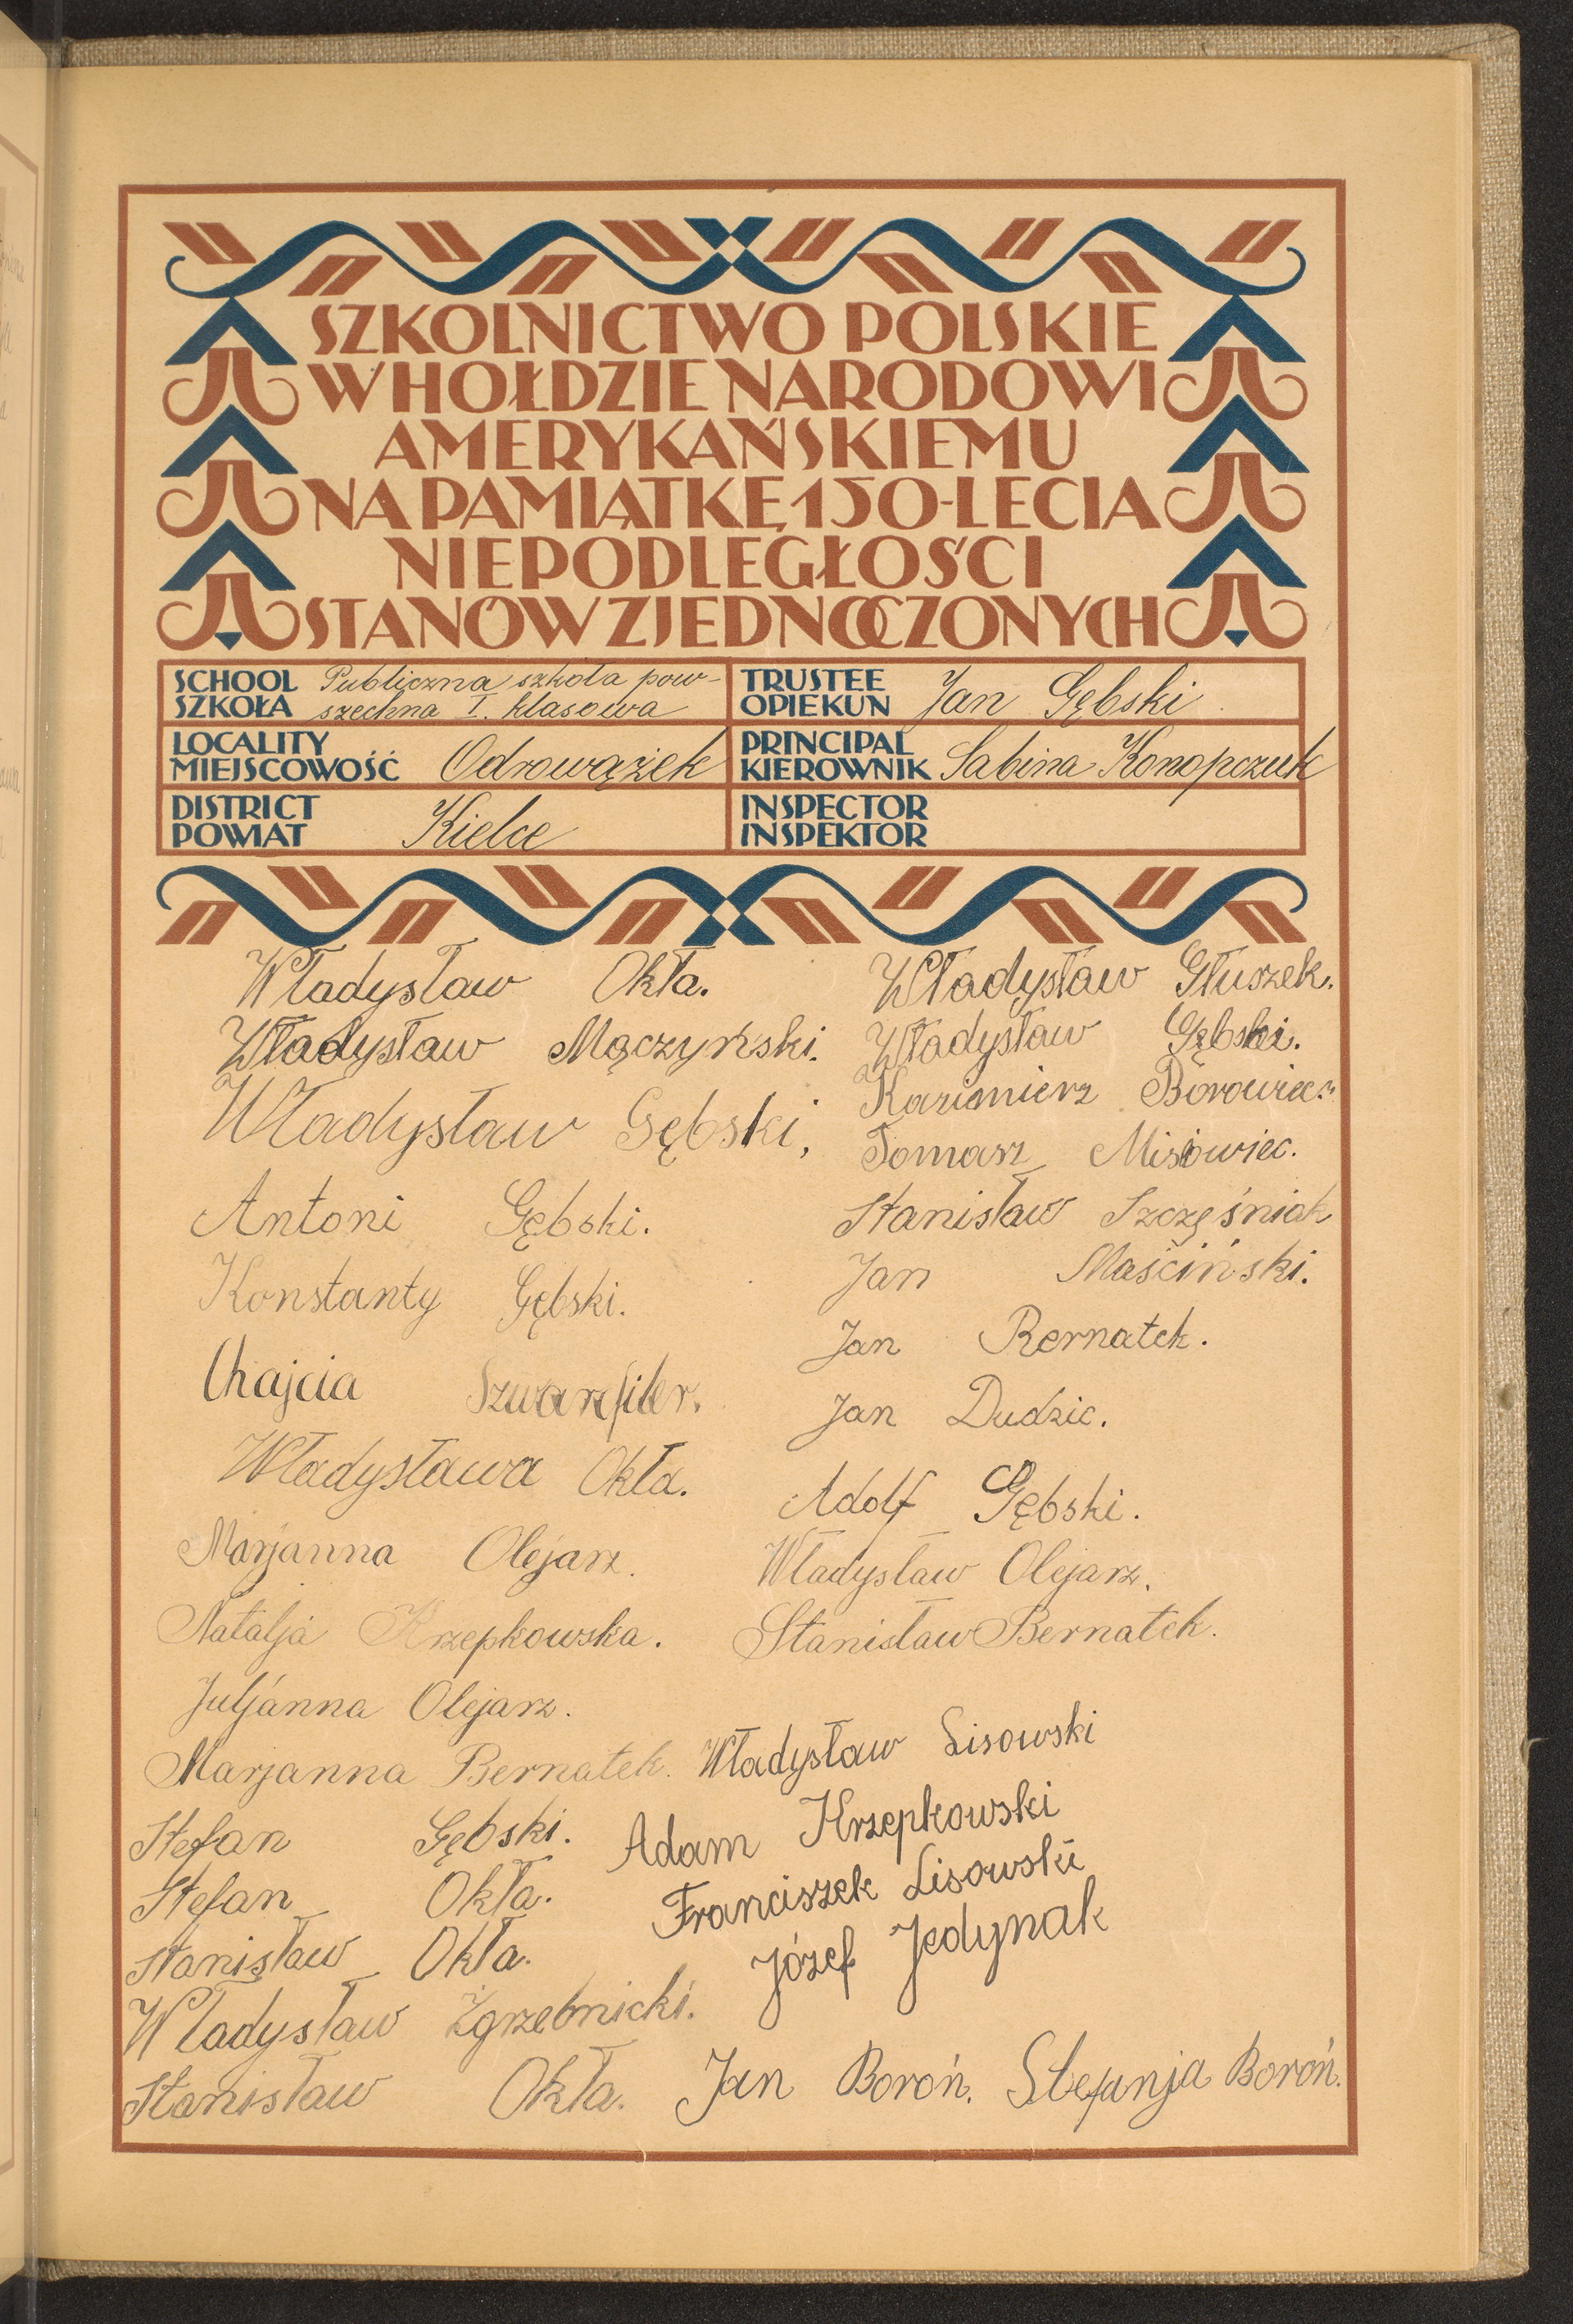 SZKOLNICTWO POLSKIE
W HOŁDZIE NARODOWI
AMERYKAŃSKIEMU
NA PAMIĄTKĘ 150-LECIA
NIEPODLEGŁOŚCI
STANÓW ZJEDNOCZONYCH
SCHOOL
SZKOŁA
Publiczna szkoła pow-
szechna I. klasowa
TRUSTEE
OPIEKUN
Jan Gębski
LOCALITY
MIEJSCOWOŚĆ
Odrowążek
PRINCIPAL
KIEROWNIK
Sabina Konopczuk
DISTRICT
POWIAT
Kielce
INSPECTOR
INSPEKTOR
Władysław Okła.
Władysław Mączyński.
Władysław Gębski,
Antoni Gębski.
Konstanty Gębski.
Chajcia
Władysława Okła.
Marjanna Olejarz.
Natalja Krzepkowska.
Juljanna Olejarz.
Marjanna Bernatek.
Stefan Gębski.
Stefan Okła.
Stanisław Okła.
Władysław Zgrzebnicki.
Stanisław Okła.
Władysław Głuszek.
Władysław Gębski.
Kazimierz Borowiec.
Tomasz Misiowiec.
Stanisław Szczęśniak
Jan Maściński.
Jan Bernatek.
Jan Dudzic.
Adolf Gębski.
Władysław Olejarz.
Stanisław Bernatek.
Władysław Lisowski
Adam Krzepkowski
Franciszek Lisowski
Józef Jedynak
Jan Boroń. Stefanja Boroń.